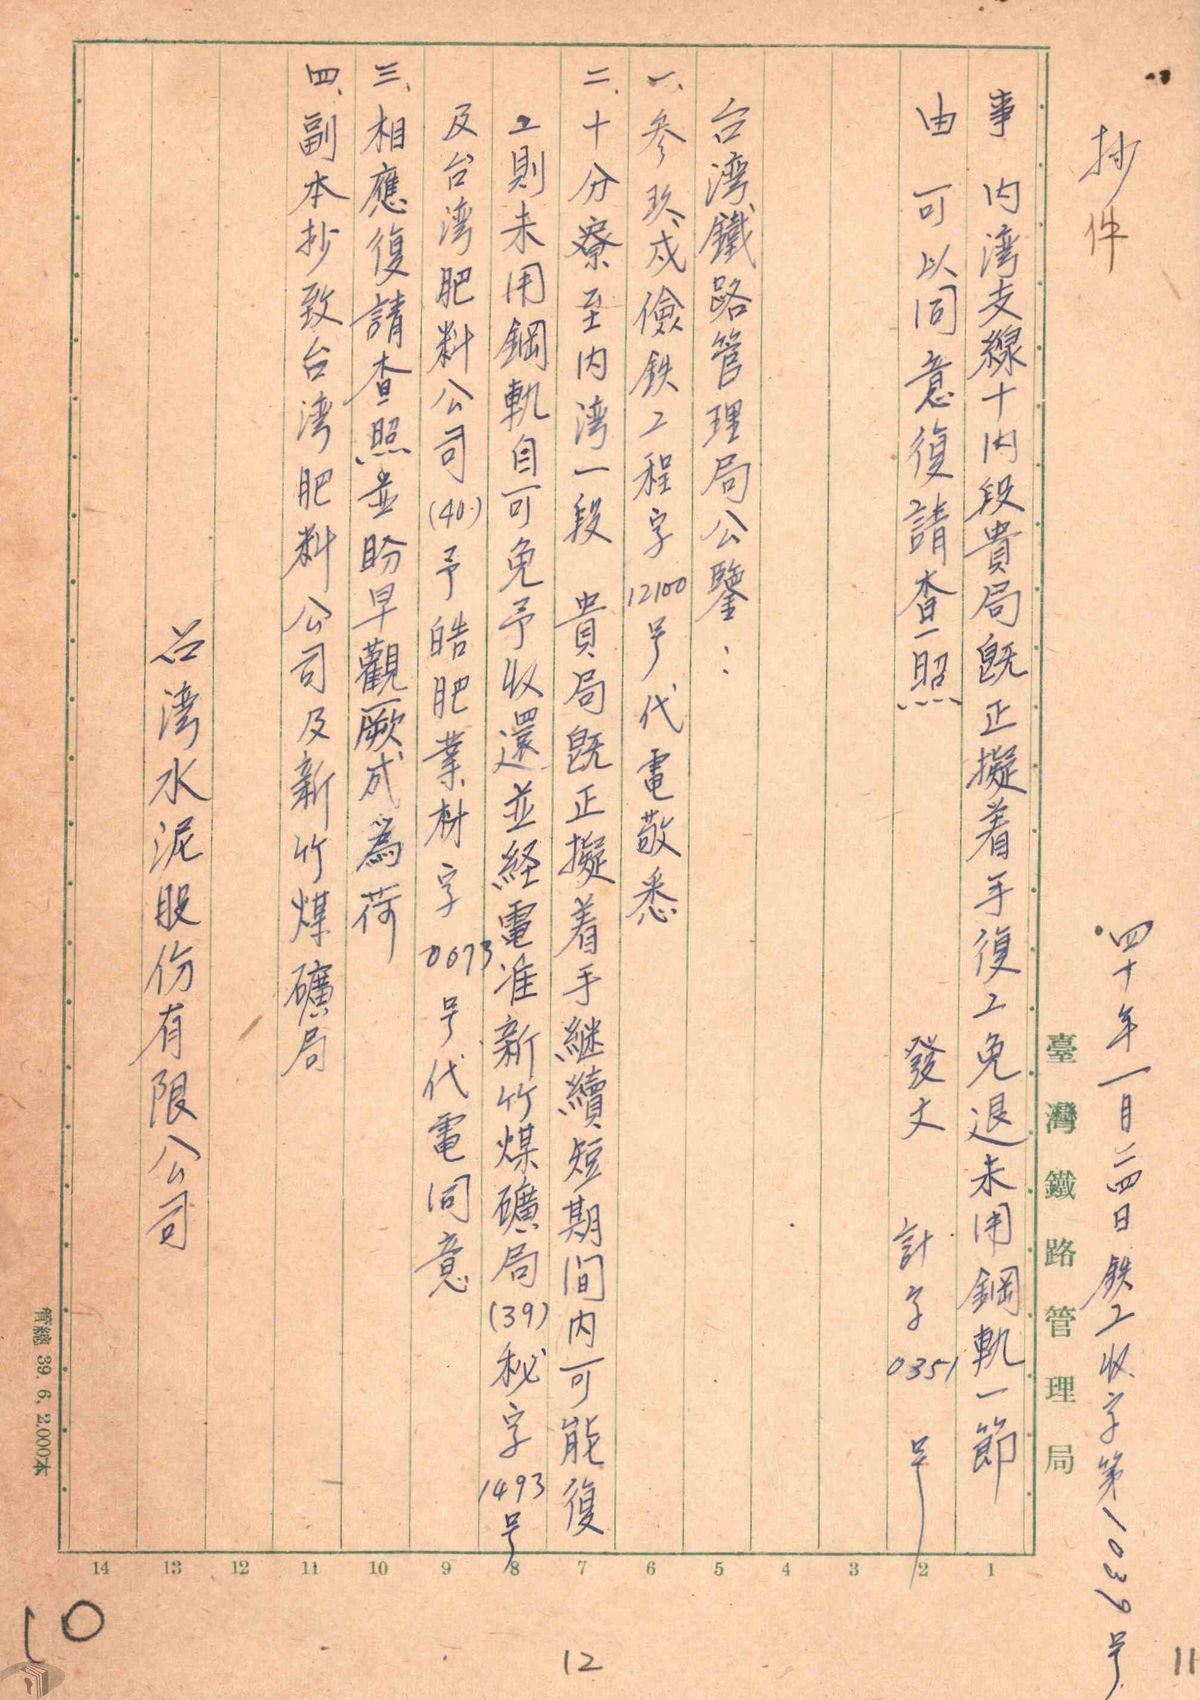 抄件
四十年一月二四日鉄工收字第1039号
臺灣鐵路管理局
事 内湾支線十内段貴局既正擬着手復工免退未用鋼軌一節
由 可以同意復請查照 發文 計字0351号
台湾鐵路管理局公鑒：
一、參玖戍儉鉄工程字12100号代電敬悉
二、十分寮至内湾一段 貴局既正擬着手継續短期间内可能復
工則未用鋼軌自可免予收還並経電准新竹煤礦局(39)秘字1493号
及台湾肥料公司(40)予皓肥業材字0073号代電同意
三、相應復請查照並盼早觀厥成為荷
四、副本抄致台湾肥料公司及新竹煤礦局
台湾水泥股份有限公司
1 2 3 4 5 6 7 8 9 10 11 12 13 14
管總 39. 6, 2,000本
10
12
11